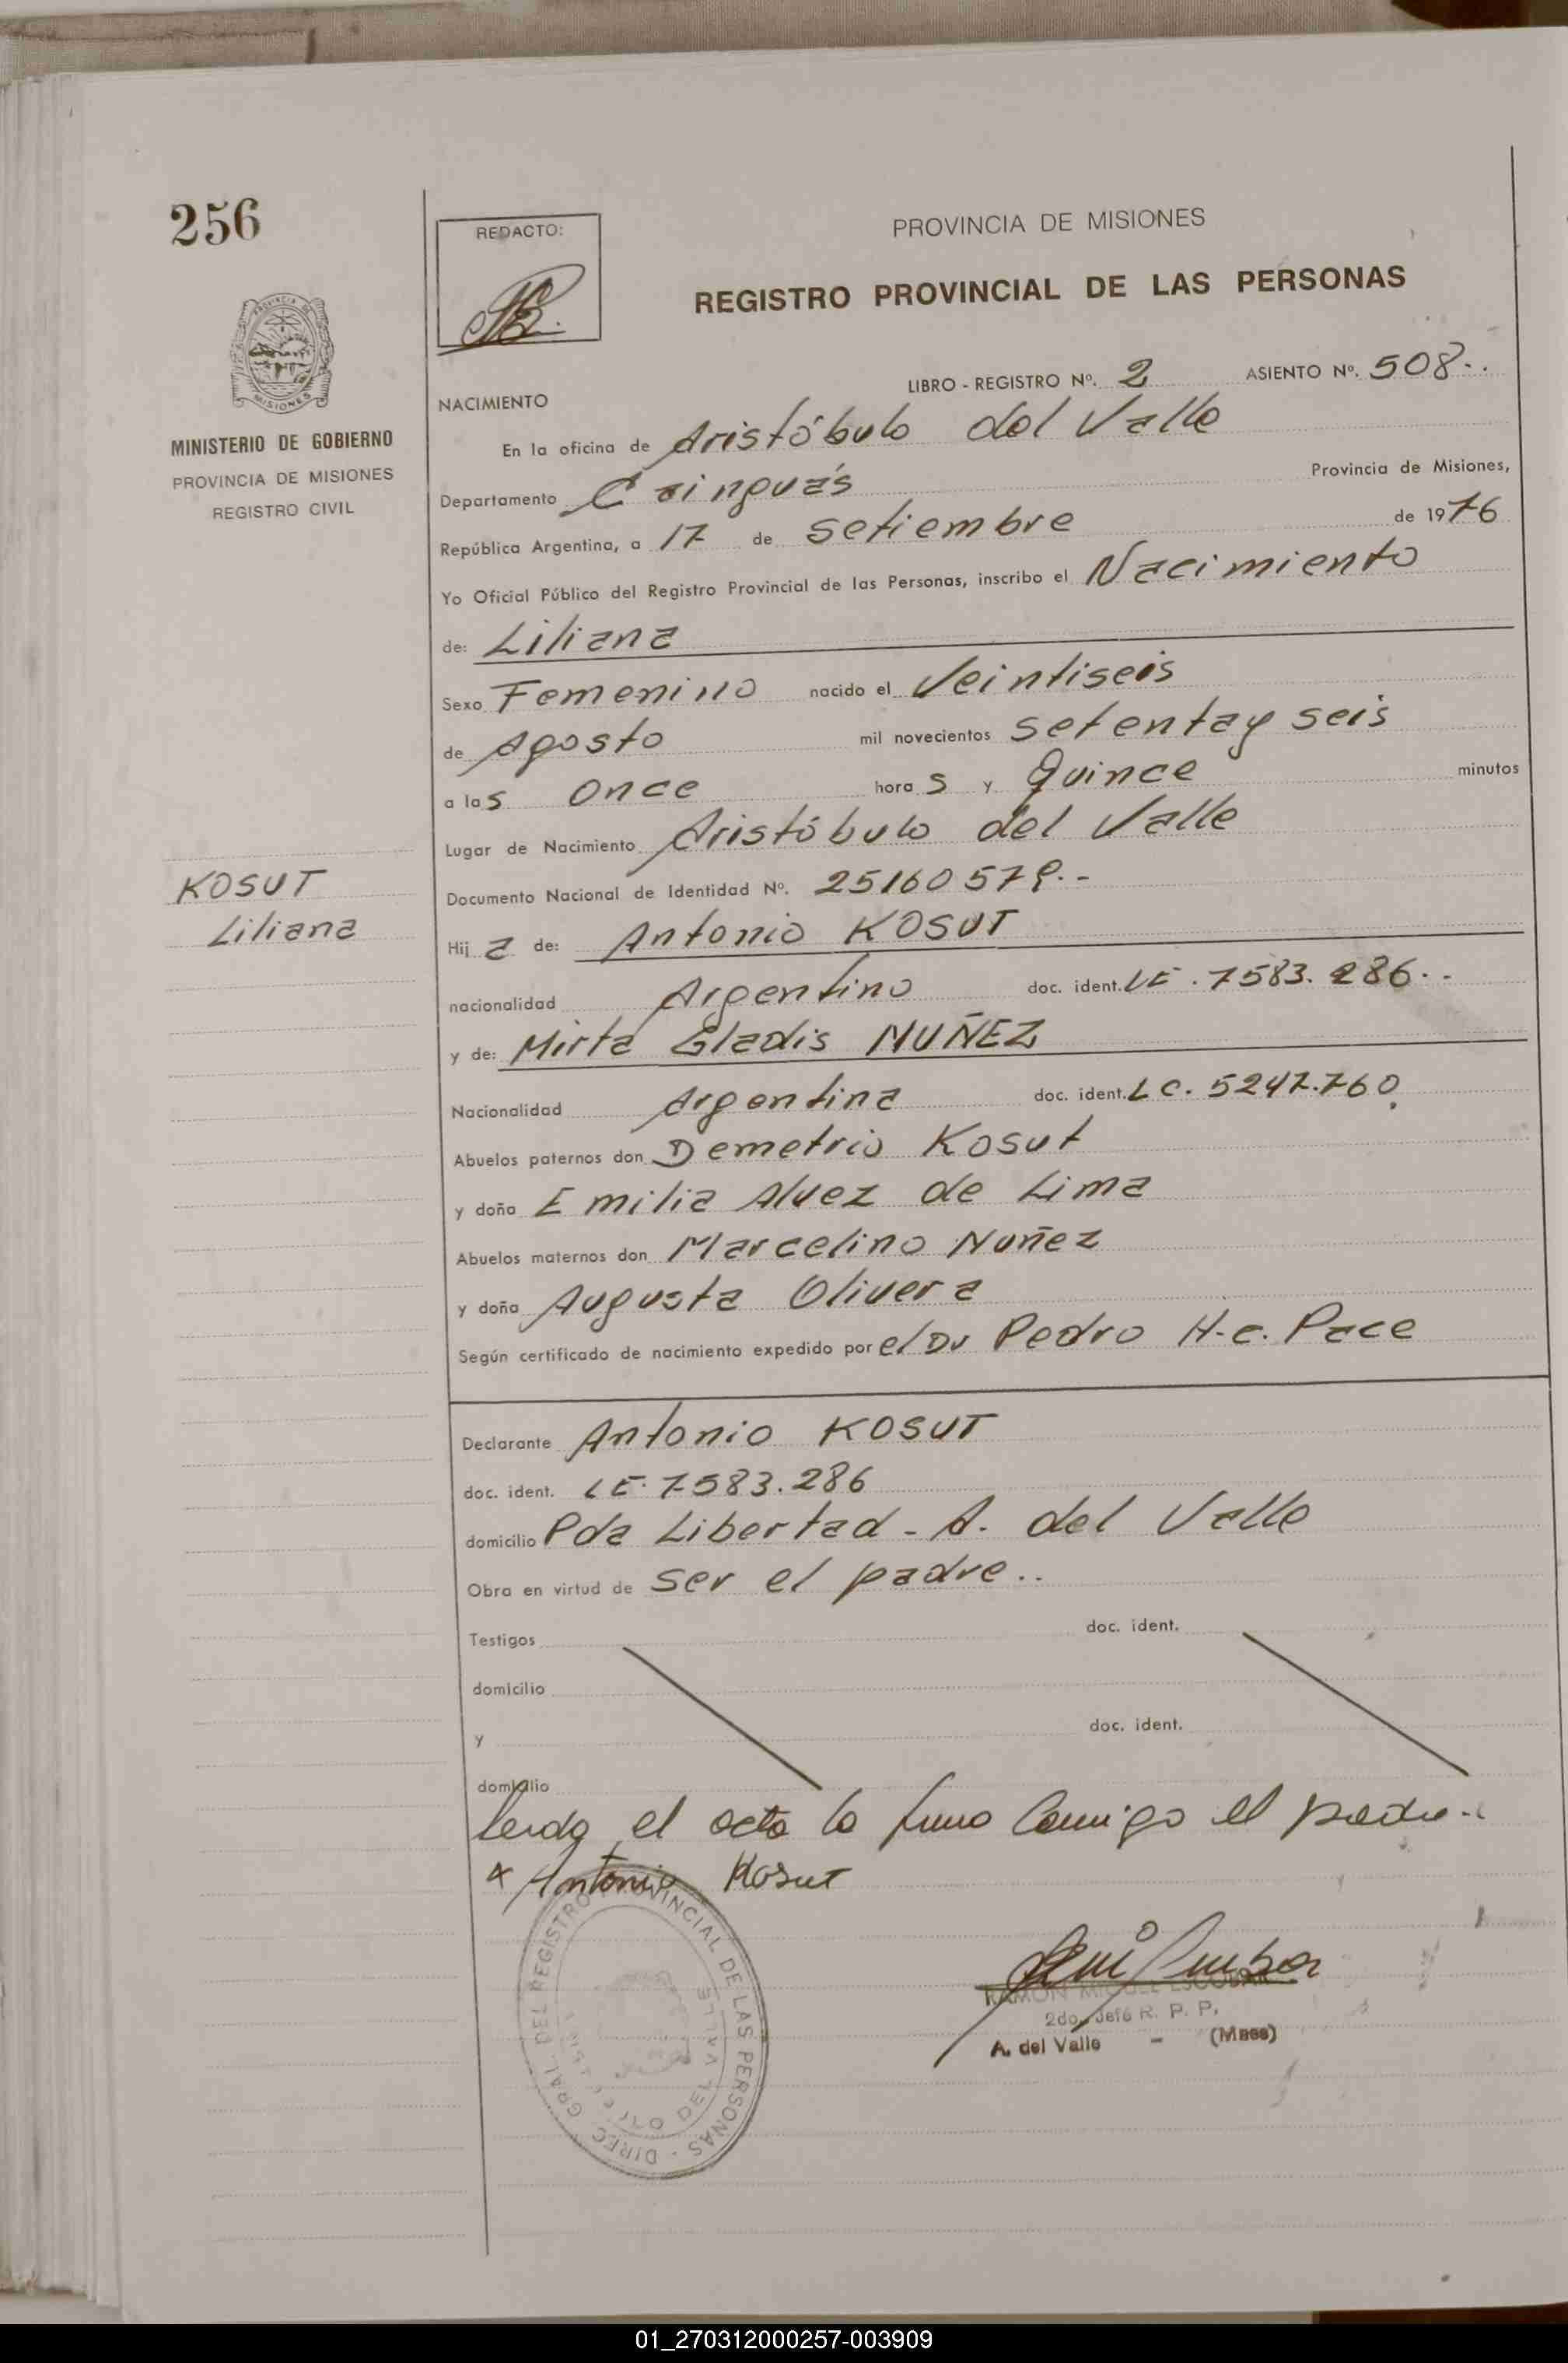 256
REDACTO:
PROVINCIA DE MISIONES
REGISTRO PROVINCIAL DE LAS PERSONAS
LIBRO - REGISTRO Nº. 2 ASIENTO Nº. 508..
MISIONES
MINISTERIO DE GOBIERNO
PROVINCIA DE MISIONES
REGISTRO CIVIL
NACIMIENTO
En la oficina de Aristóbulo del Valle
Departamento Cainguás Provincia de Misiones,
República Argentina, a 17 de Setiembre de 1976
Yo Oficial Público del Registro Provincial de las Personas, inscribo el Nacimiento
de: Liliana
Sexo Femenino nacido el Veintiseis
de Agosto mil novecientos setentay seis
a las once horas y Quince minutos
Lugar de Nacimiento Aristóbulo del Valle
KOSUT
Liliana
Documento Nacional de Identidad Nº. 25160579.-
Hija de: Antonio KOSUT
nacionalidad Argentino doc. ident. LE. 7583.286.-
y de: Mirta Gladis NUÑEZ
Nacionalidad Argentina doc. ident. LC. 5247.760.
Abuelos paternos don Demetrio Kosut
y doña Emilia Alvez de Lima
Abuelos maternos don Marcelino Nuñez
y doña Augusta Olivera
Según certificado de nacimiento expedido por el Dr Pedro H.C. Pace
Declarante Antonio KOSUT
doc. ident. LE. 7583.286
domicilio Pda Libertad - A. del Valle
Obra en virtud de ser el padre..
Testigos doc. ident.
domicilio
y doc. ident.
domicilio
leida el acta la firma Conmigo el padre.-
x Antonio Kosut
DIREC. GRAL. DEL REGISTRO PROVINCIAL DE LAS PERSONAS
DEL VALLE
RAMON MIGUEL ESCOBAR
2do. Jefe R. P. P.
A. del Valle - (Mnes)
01_270312000257-003909